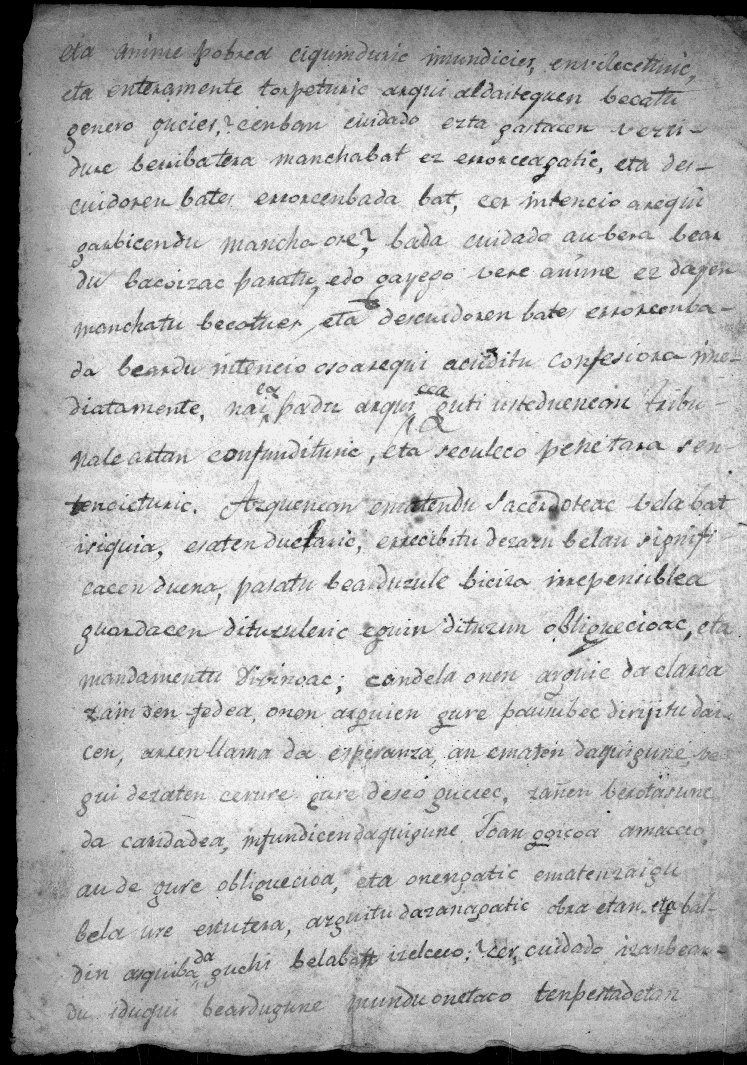 eta anime pobrea ciquinduric inmundicies, envilecetturic,
eta enteramente torpeturic argui aldaireguen becatu
genero gucies,? cenban cuidado ezta gastacen verti-
dure berribatera manchabat ez erorceagatic, eta des-
cuidoren bates errorcenbada bat, cer intencio aregui
garbicendu mancha ore? bada cuidado aubera bear
du bacoizac paratu, edo gayego vere anime ez dayen
manchatu becatues, eta descuidoren bates errorcenba-
da beardu intencio osoaregui acuditu confesiora inme-
diatamente, naiz padez argui guti usteduencan tribu-
nale artan confundituric, eta seculeco penetara sen-
tenciaturic. Azquenean ematendu Sacerdoteac bela bat
isiquia, esaten duelaric, errecibitu dezazu belau signifi-
cacen duena, paratu bearduzule biciza irrepensiblea
guardacen dituzuleric eguin dituzun obliguecioac, eta
mandamentu Divinoac; candela onen arguic da clarca
zain den fedea, onen arguien gure pausubec dirijitu dai-
cen, arren llama da esperanza, an ematen daquigune, se-
gui dezaten cerure gure deseo guciec, zañen berotasune
da caridadea, infundicendaquigune Joangoicoa amaccio,
au de gure obliguecioa, eta onengatic ematenzaigu
bela ure escutera, arguitu dazanagatic obra etan eta bal-
din arquiba da guchi belabatt izelceco,? cer, cuidado izanbear-
du iduqui beardugune munduonetaco tenpestadetan